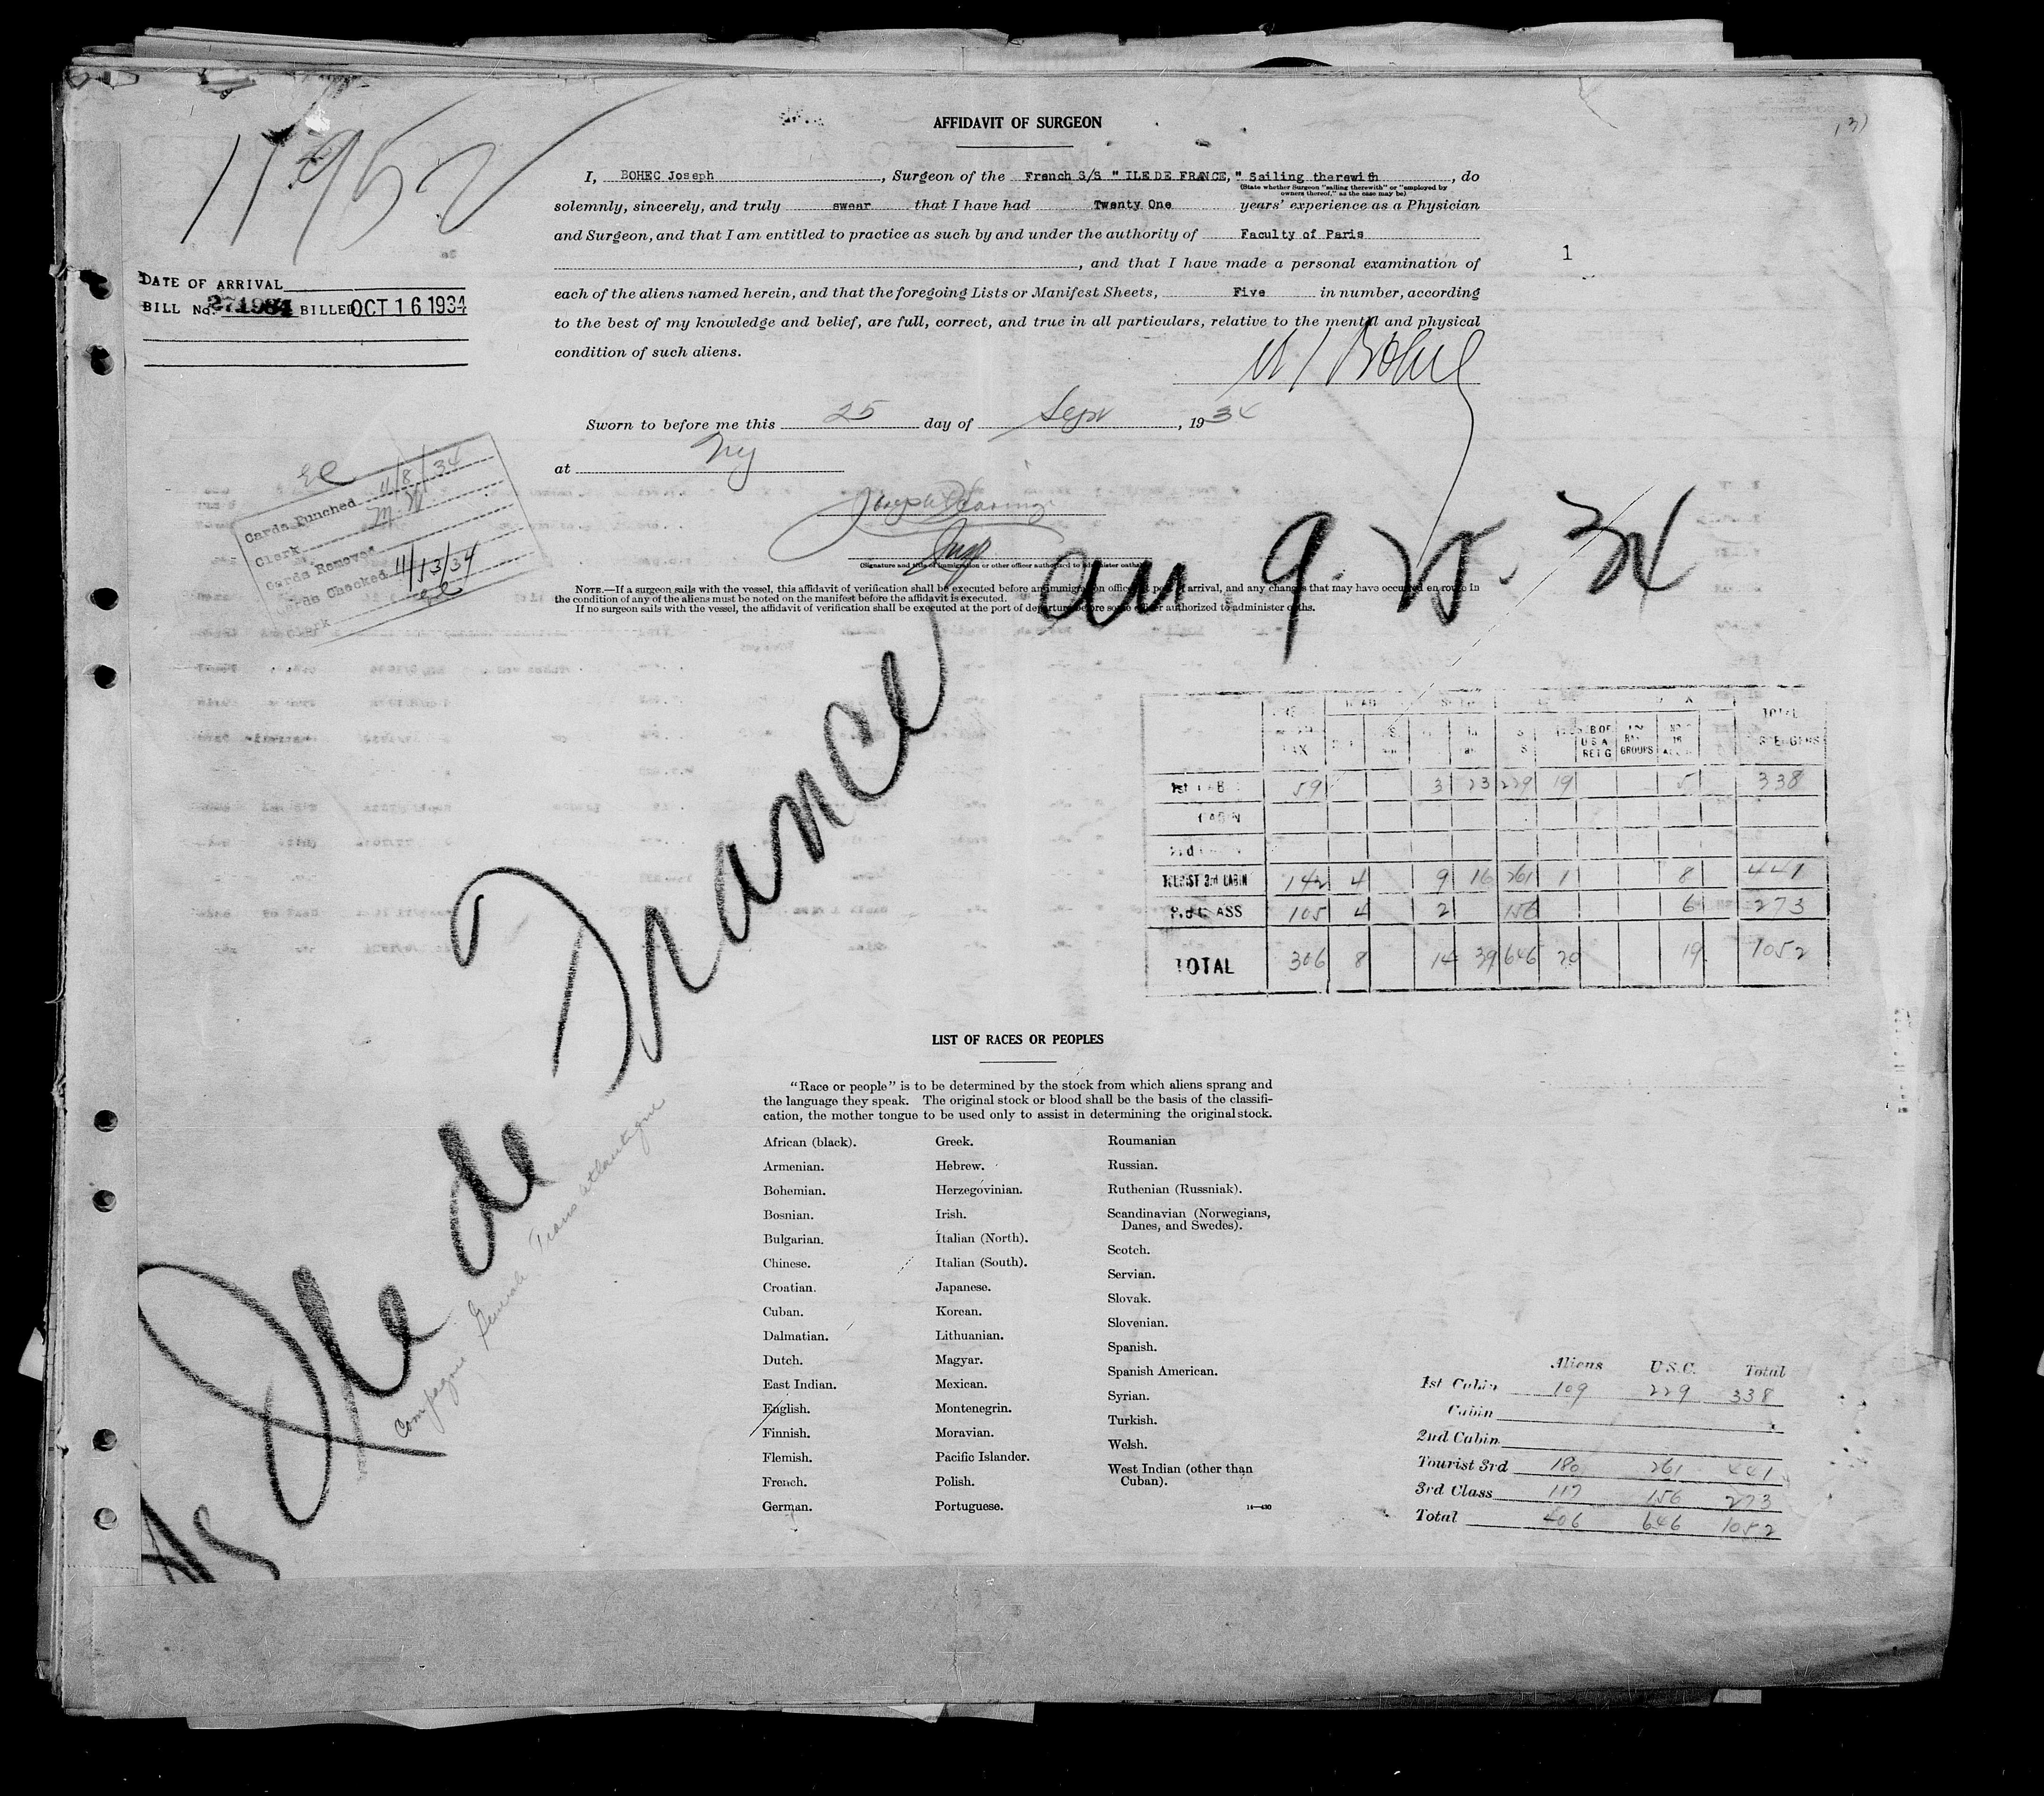 AFFIDAVIT OF SURGEON
11952
I, BOHEC Joseph, Surgeon of the French S/S " ILE DE FRANCE, " Sailing therewith, do
(State whether Surgeon "sailing therewith" or "employed by
owners thereof," as the case may be)
solemnly, sincerely, and truly swear that I have had Twenty One years' experience as a Physician
and Surgeon, and that I am entitled to practice as such by and under the authority of Faculty of Paris
, and that I have made a personal examination of
each of the aliens named herein, and that the foregoing Lists or Manifest Sheets, Five in number, according
to the best of my knowledge and belief, are full, correct, and true in all particulars, relative to the mental and physical
condition of such aliens.
1
DATE OF ARRIVAL
BILL No. BILLED OCT 16 1934
Bohec
Sworn to before me this 25 day of Sept, 1934
at NY
Insp
(Signature and title of immigration or other officer authorized to administer oaths)
Cards Punched 11/8/34
Clerk
Cards Removed
Cards Checked 11/13/34
Clerk
NOTE.—If a surgeon sails with the vessel, this affidavit of verification shall be executed before an immigration officer at port of arrival, and any changes that may have occurred en route in
the condition of any of the aliens must be noted on the manifest before the affidavit is executed.
If no surgeon sails with the vessel, the affidavit of verification shall be executed at the port of departure before some officer authorized to administer oaths.
SS Ile de France arr 9. 25. 34
Compagnie Generale Transatlantique
TAX U.S.A. GROUPS TOTAL
1st CAB 59 3 23 229 19 5 338
CABIN
TOURIST 3rd CABIN 142 4 9 16 261 1 8 441
3rd CLASS 105 4 2 156 6 273
TOTAL 306 8 14 39 646 20 19 1052
LIST OF RACES OR PEOPLES
"Race or people" is to be determined by the stock from which aliens sprang and
the language they speak. The original stock or blood shall be the basis of the classifi-
cation, the mother tongue to be used only to assist in determining the original stock.
African (black).
Armenian.
Bohemian.
Bosnian.
Bulgarian.
Chinese.
Croatian.
Cuban.
Dalmatian.
Dutch.
East Indian.
English.
Finnish.
Flemish.
French.
German.
Greek.
Hebrew.
Herzegovinian.
Irish.
Italian (North).
Italian (South).
Japanese.
Korean.
Lithuanian.
Magyar.
Mexican.
Montenegrin.
Moravian.
Pacific Islander.
Polish.
Portuguese.
Roumanian
Russian.
Ruthenian (Russniak).
Scandinavian (Norwegians,
Danes, and Swedes).
Scotch.
Servian.
Slovak.
Slovenian.
Spanish.
Spanish American.
Syrian.
Turkish.
Welsh.
West Indian (other than
Cuban).
14—430
Aliens U.S.C. Total
1st Cabin 109 229 338
Cabin
2nd Cabin
Tourist 3rd 180 261 441
3rd Class 117 156 273
Total 406 646 1052